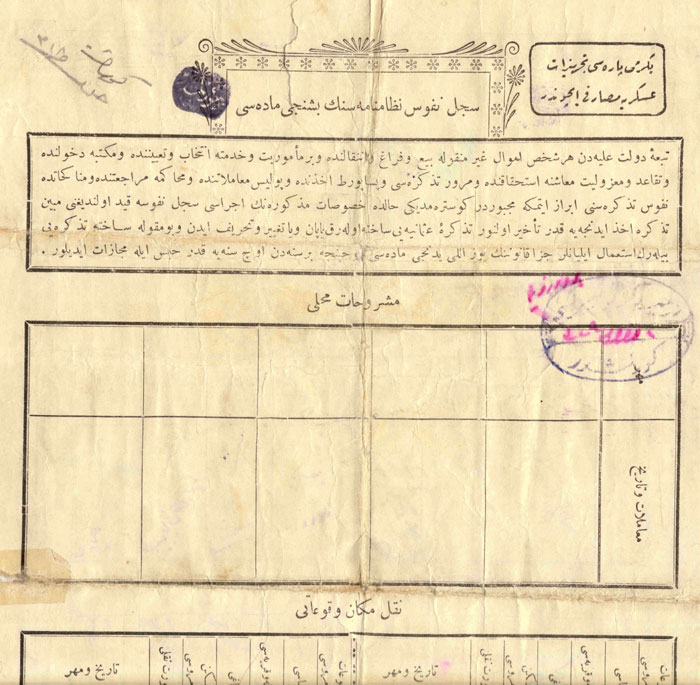 یكرمی پاره سی تجهیزات
عسكریه مصارفی ایچوندر
سجل نفوس نظامنامه سنك بشنجی ماده سی
تبعهٔ دولت علیه دن هر شخص اموال غیر منقوله بیع و فراغ و انتقالنده و بر مأموریت و خدمته انتخاب و تعییننده و مكتبه دخولنده
و تقاعد و معزولیت معاشنه استحقاقنده و مرور تذكره سی و پساپورط اخذنده و پولیس معاملاتنده و محاكمه مراجعتنده و مناكحاتده
نفوس تذكره سنی ابراز ایتمكه مجبوردر كوسترمدیكی حالده خصوصات مذكوره نك اجراسی سجل نفوسه قید اولندیغی مبین
تذكره اخذ ایدنجه یه قدر تأخیر اولنور تذكرهٔ عثمانیه یی ساخته اوله رق یاپان و یا تغییر و تحریف ایدن و بومقوله ساخته تذكره یی
بیله رك استعمال ایلیانلر جزا قانوننك یوز اللی یدنجی ماده سی حكمنجه بر سنه دن اوچ سنه یه قدر حبس ایله مجازات ایدیلور .
مشروحات محلی
مهر
معاملات و تاریخ
نقل مكان وقوعاتی
تاریخ و مهر
تاریخ و مهر